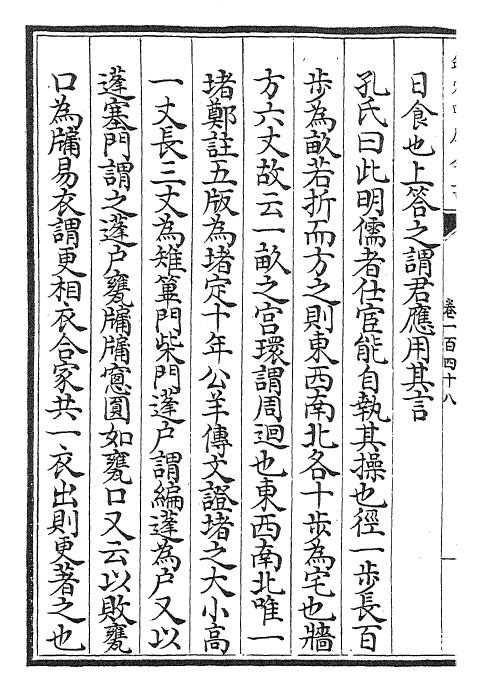 日食也上答之謂君應用其言
孔氏曰此明儒者仕宦能自執其操也徑一歩長百
歩為畝若折而方之則東西南北各十歩為宅也牆
方六丈故云一畝之宫環謂周迴也東西南北唯一
堵鄭註五版為堵定十年公羊傳文證堵之大小高
一丈長三丈為雉篳門柴門蓬户謂編蓬為户又以
蓬塞門謂之蓬户甕牖牖窻圓如甕口又云以敗甕
口為牖易衣謂更相衣合家共一衣出則更著之也
卷一百四十八